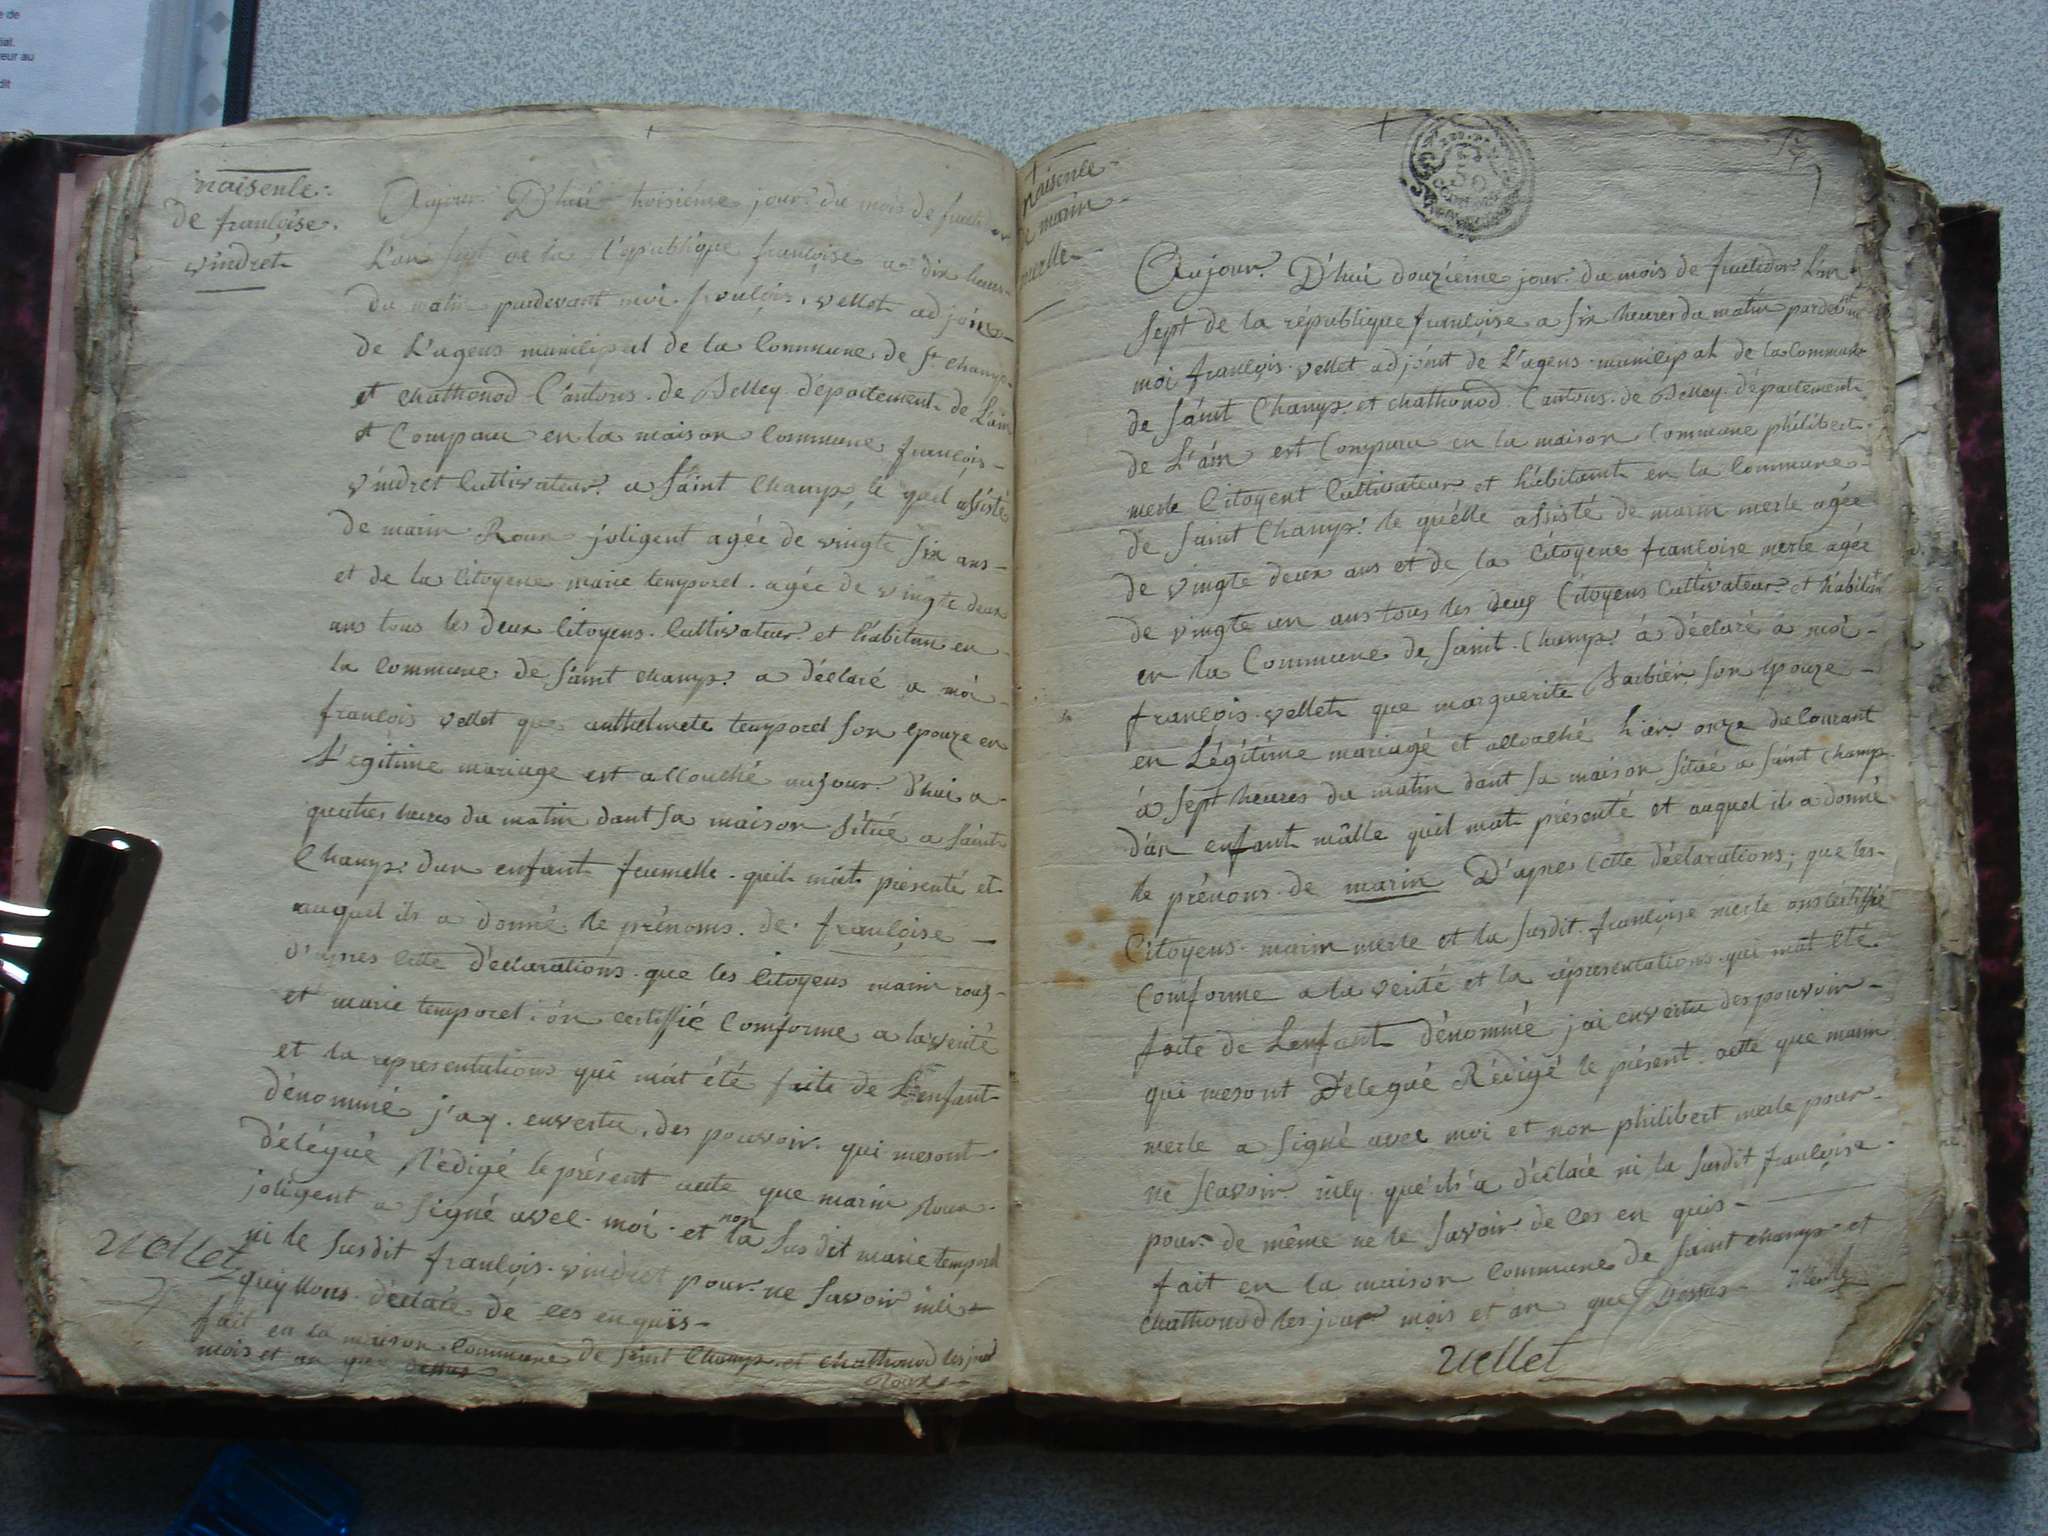 naisence
de francoise
vindret
Aujour D'hui troisiéme jour du mois de fructidor
L'an sept de la République françoise a dix heures
du matin pardevant moi françois vellet adjoint
de L'agens municipal de la Commune de St champ
et chathonod Cantons de Belley département de L'ain
et Comparu en la maison Commune françois
vindret Cultivateur a Saint Champ le quel assisté
de marin Roux joligent agée de vingte six ans
et de la Citoyene marie temporel agée de vingte deux
ans tous les deux Citoyens Cultivateur et habitan en
la Commune de Saint champ a déclaré a moi
francois vellet que anthelmete temporel son epouze en
Légitime mariage est allouché aujour d'hui a
quatres heures du matin dant sa maison Située a Saint
Champ dun enfant feumelle quil màt présenté et
auquel ils a donné le prénoms de françoise
d'apres cette déclarations que les Citoyens marin roux
et marie temporel on certiffié Comforme a la verité
et la representations qui màt été faite de L'enfant
dénommé j'ay envertu des pouvoir qui mesont
délégué Rédigé le présent acte que marin Roux
joligent a signé avec moi et non la susdit marie temporel
ni le susdit francois vindret pour ne savoir
de ces en quis
fait en la maison Commune de Saint Champ et chathonod les jour
mois et an que dessus
Roux
vellet
naisence
de marin
merle
Aujour D'hui douziéme jour du mois de fructidor L'an
sept de la république françoise a six heures du matin pardevant
moi françois vellet adjoint de L'agens municipal de la Commune
de Saint Champ et chathonod Cantons de Belley département
de L'ain est Comparu en la maison Commune philibert
merle Citoyent Cultivateur et habitant en la Commune
de Saint Champ le quélle assisté de marin merle agée
de vingte deux ans et de la Citoyene francoise merle agée
de vingte un ans tous les deux Citoyens Cultivateur et habitant
en la Commune de Saint Champ à déclaré à moi
françois vellet que marguerite Barbier son epouze
en Légitime mariagé et allouché hier onze du Courant
à sept heures du matin dant sa maison située a Saint Champ
d'un enfant màlle quil mat présenté et auquel ils a donné
le prénons de marin D'apres cette déclarations que les
Citoyens marin merle et la susdit françoise merle ons certiffié
Comforme a la verité et la répresentations qui mat été
faite de Lenfant dénommé jai envertu des pouvoir
qui mesont Délegué Rédigé le présent acte que marin
merle a Signé avec moi et non philibert merle pour
ne scavoir que ils à déclaré ni la susdit françoise
pour de même ne le savoir de ces en quis
fait en la maison Commune de Saint champ et
chathonod les jour mois et an que Dessus Merle
vellet